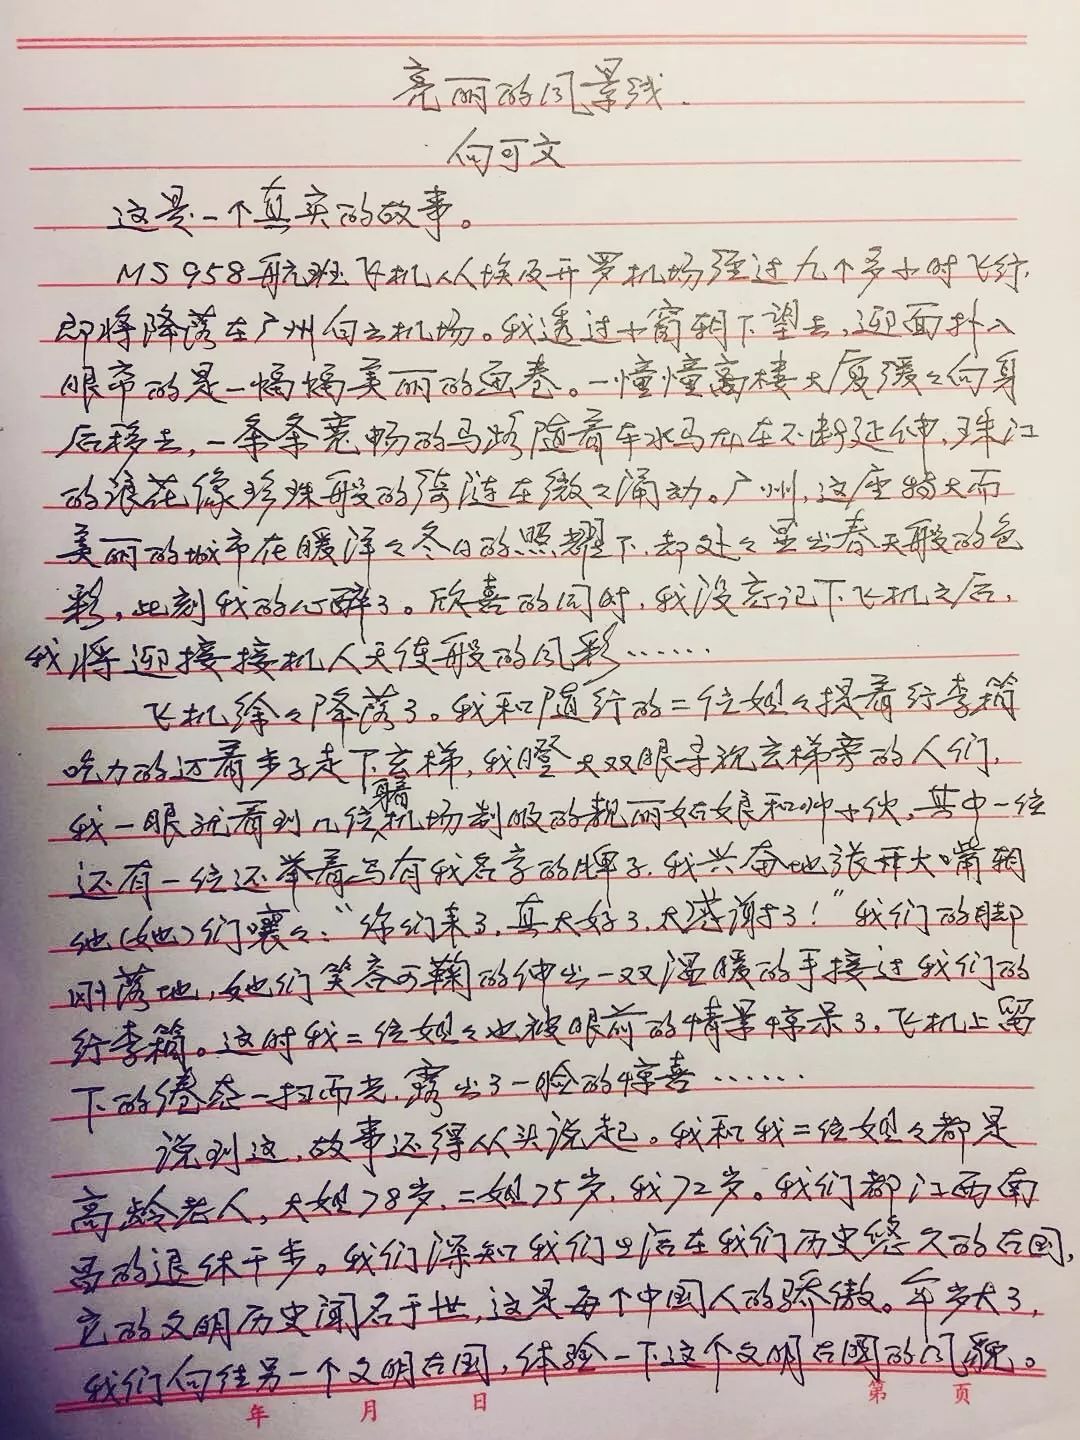 亮丽的风景线.
向可文
这是一个真实的故事。
MS958航班飞机从埃及开罗机场经过九个多小时飞行,
即将降落在广州白云机场。我透过小窗朝下望去,迎面扑入
眼帘的是一幅幅美丽的画卷。一幢幢高楼大厦缓々向身
后移去,一条条宽畅的马路随着车水马龙在不断延伸,珠江
的浪花像珍珠般的涟在微々涌动。广州,这座特大而
美丽的城市在暖洋々冬日的照耀下,却处々呈出春天般的色
彩,此刻我的心醉了。欣喜的同时,我没忘记下飞机之后,
我将迎接接机人天使般的风彩……
飞机徐々降落了。我和随行的二位姐々提着行李箱
吃力的迈着步子走下玄梯,我瞪大双眼寻视玄梯旁的人们,
我一眼就看到几位着机场制服的靓丽姑娘和帅小伙,其中一位
还有一位还举着写有我名字的牌子,我兴奋地张开大嘴朝
他(她)们嚷々:“你们来了,真太好了,太感谢了!”我们的脚
刚落地,她们笑容可鞠的伸出一双温暖的手接过我们的
行李箱。这时我二位姐々也被眼前的情景惊呆了,飞机上留
下的倦态一扫而光,露出了一脸的惊喜……
说到这,故事还得从头说起。我和我二位姐々都是
高龄老人,大姐78岁,二姐75岁,我72岁。我们都江西南
昌的退休干步。我们深知我们生活在我们历史悠久的古国,
它的文明历史闻名于世,这是每个中国人的骄傲。年岁大了,
我们向往另一个文明古国,体验一下这个文明古国的风貌。
年 月 日 第 页